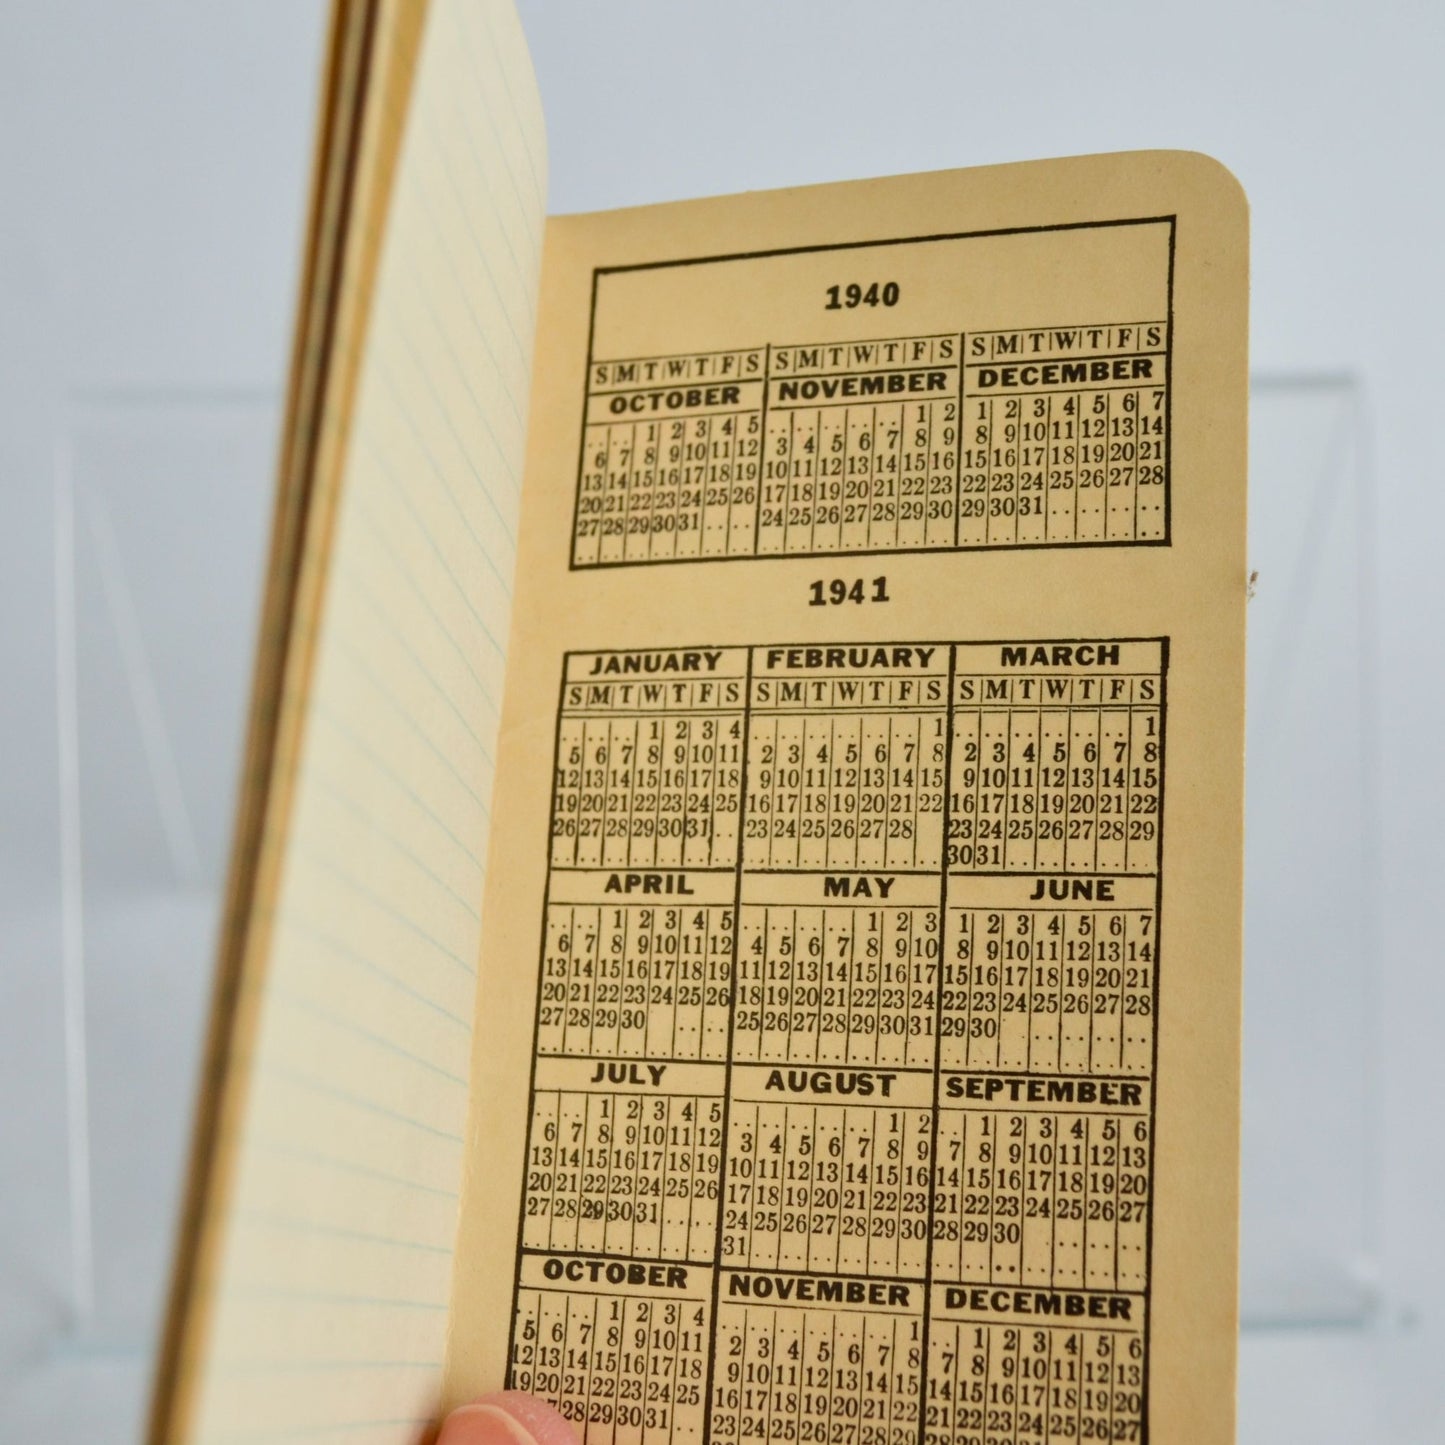 1940
S M T W T F S S M T W T F S S M T W T F S
OCTOBER NOVEMBER DECEMBER
.. .. 1 2 3 4 5 .. .. .. .. .. 1 2 1 2 3 4 5 6 7
6 7 8 9 10 11 12 3 4 5 6 7 8 9 8 9 10 11 12 13 14
13 14 15 16 17 18 19 10 11 12 13 14 15 16 15 16 17 18 19 20 21
20 21 22 23 24 25 26 17 18 19 20 21 22 23 22 23 24 25 26 27 28
27 28 29 30 31 .. .. 24 25 26 27 28 29 30 29 30 31 .. .. .. ..
1941
JANUARY FEBRUARY MARCH
S M T W T F S S M T W T F S S M T W T F S
.. .. .. 1 2 3 4 .. .. .. .. .. .. 1 .. .. .. .. .. .. 1
5 6 7 8 9 10 11 2 3 4 5 6 7 8 2 3 4 5 6 7 8
12 13 14 15 16 17 18 9 10 11 12 13 14 15 9 10 11 12 13 14 15
19 20 21 22 23 24 25 16 17 18 19 20 21 22 16 17 18 19 20 21 22
26 27 28 29 30 31 .. 23 24 25 26 27 28 23 24 25 26 27 28 29
30 31 .. .. .. .. ..
APRIL MAY JUNE
.. .. 1 2 3 4 5 .. .. .. .. 1 2 3 1 2 3 4 5 6 7
6 7 8 9 10 11 12 4 5 6 7 8 9 10 8 9 10 11 12 13 14
13 14 15 16 17 18 19 11 12 13 14 15 16 17 15 16 17 18 19 20 21
20 21 22 23 24 25 26 18 19 20 21 22 23 24 22 23 24 25 26 27 28
27 28 29 30 .. .. 25 26 27 28 29 30 31 29 30 .. .. .. ..
JULY AUGUST SEPTEMBER
.. .. 1 2 3 4 5 .. .. .. .. .. 1 2 .. 1 2 3 4 5 6
6 7 8 9 10 11 12 3 4 5 6 7 8 9 7 8 9 10 11 12 13
13 14 15 16 17 18 19 10 11 12 13 14 15 16 14 15 16 17 18 19 20
20 21 22 23 24 25 26 17 18 19 20 21 22 23 21 22 23 24 25 26 27
27 28 29 30 31 .. .. 24 25 26 27 28 29 30 28 29 30 .. .. ..
31 .. .. .. .. .. ..
OCTOBER NOVEMBER DECEMBER
.. .. .. 1 2 3 4 .. .. .. .. .. .. 1 .. 1 2 3 4 5 6
5 6 7 8 9 10 11 2 3 4 5 6 7 8 7 8 9 10 11 12 13
12 13 14 15 16 17 18 9 10 11 12 13 14 15 14 15 16 17 18 19 20
19 20 21 22 23 24 25 16 17 18 19 20 21 22 21 22 23 24 25 26 27
28 29 30 31 .. 23 24 25 26 27 28 29 28 29 30 31